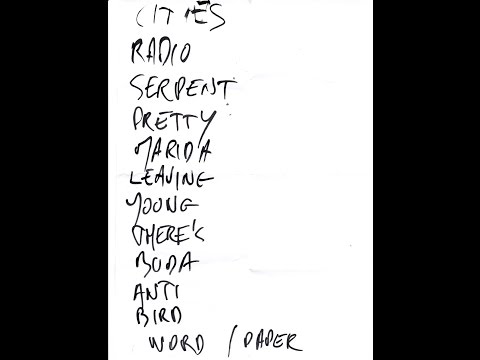 CITIES
RADIO
SERPENT
PRETTY
MARIDA
LEAVING
YOUNG
THERE'S
BUDA
ANTI
BIRD
WORD / PAPER